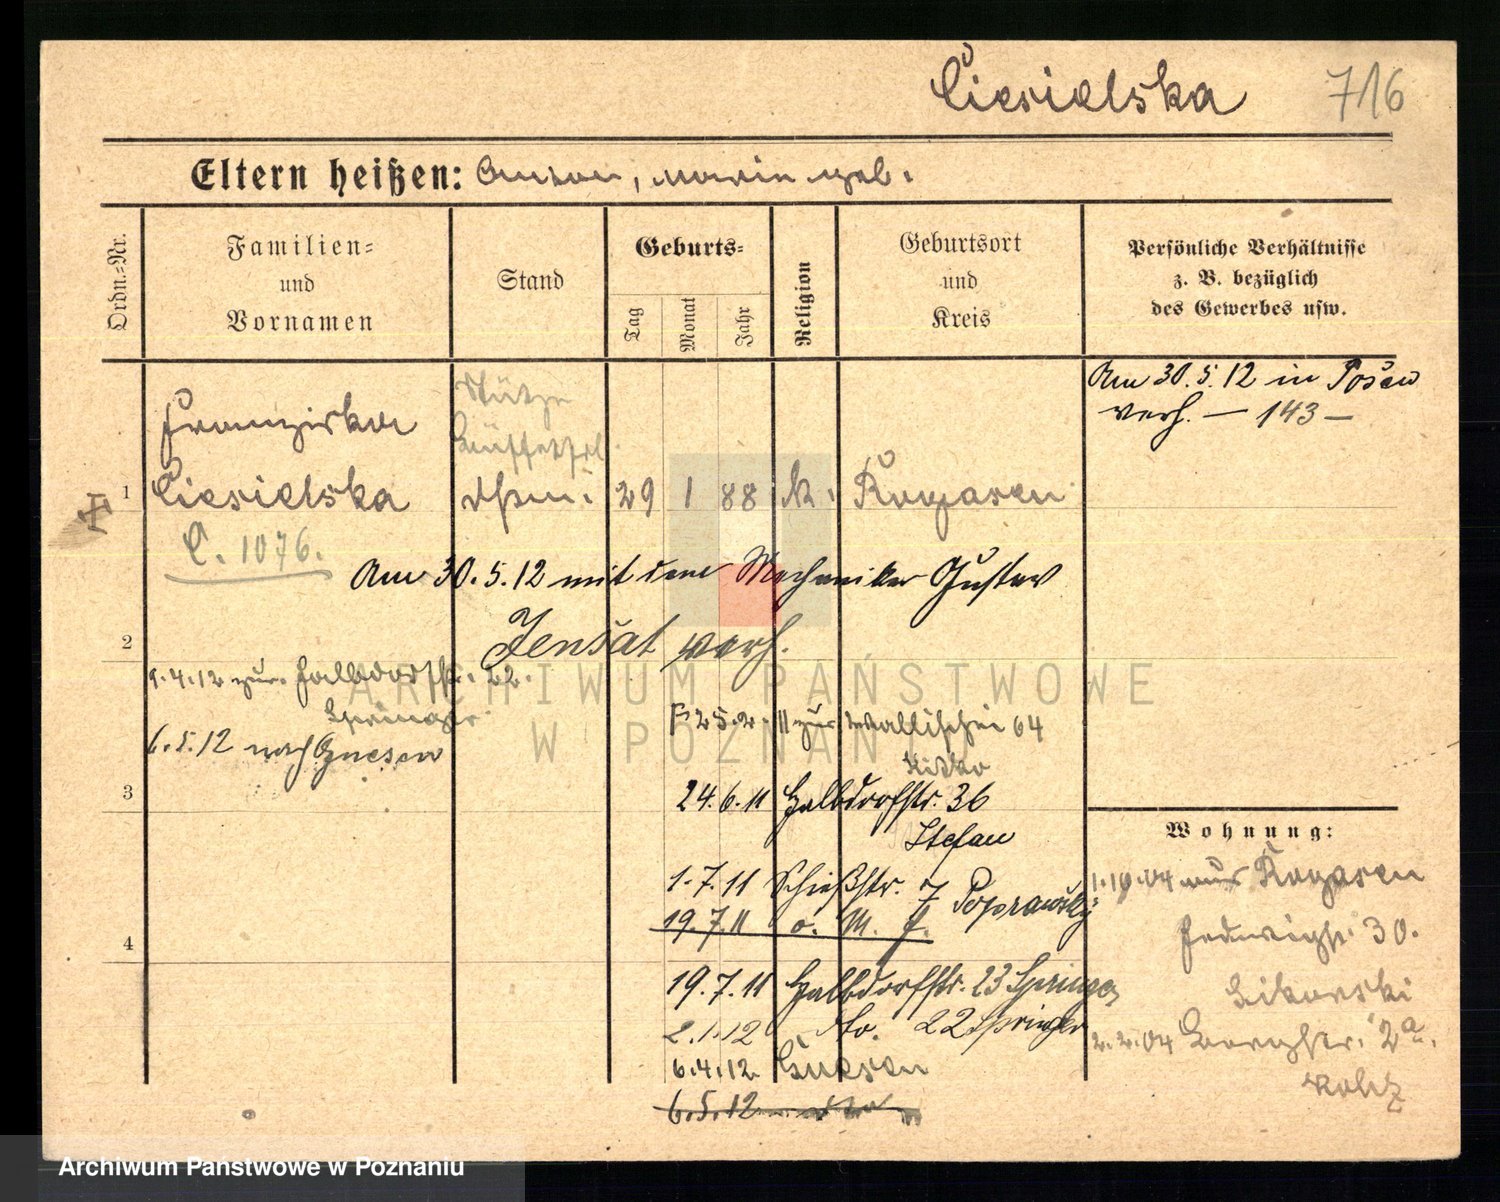 Ciesielska 716
Eltern heißen: Anton, Marie geb.
Ordn.-Nr.
Familien-
und
Vornamen
Stand
Geburts-
Tag
Monat
Jahr
Religion
Geburtsort
und
Kreis
Persönliche Verhältnisse
z. B. bezüglich
des Gewerbes usw.
Am 30.5.12 in Posen
verh. — 143 —
Stütze
Franziska
Büffetfrl.
1 Ciesielska 29 1 88 k. Rogasen
C. 1076.
Am 30.5.12 mit dem Mechaniker Gustav
2 Jensat verh.
9.4.12 zur. Halbdorfstr. 22.
Springer
6.5.12 nach Gnesen
25.2.11 zur Wallischei 64
3 24.6.11 Halbdorfstr. 36
Stefan
1.7.11 Schießstr. 7 Poprawsky
19.7.11 o. M. f.
4
19.7.11 Halbdorfstr. 23 Springer
2.1.12 do. 22 Springer
6.4.12 Gnesen
6.5.12
Wohnung:
1.10.04 aus Rogasen
Hedwigstr. 30.
Sikorski
2.2.04 2a.
ARCHIWUM PAŃSTWOWE
W POZNANIU
Archiwum Państwowe w Poznaniu